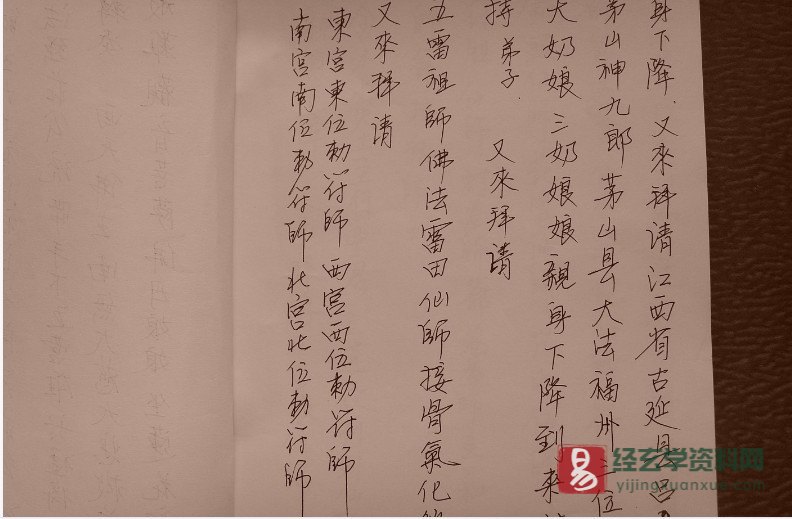 身下降.又來拜请江西省古延县吕
茅山神九郎茅山县大法福州三位
大奶娘三奶娘娘親身下降到來
持弟子. 又來拜请
五雷祖師佛法雷田仙師接骨氣化
又來拜请
東宮東位勅符師西宮西位勅符師
南宮南位勅符師北宮北位勅符師
易
经玄学资料网
yijingxuanxue.com